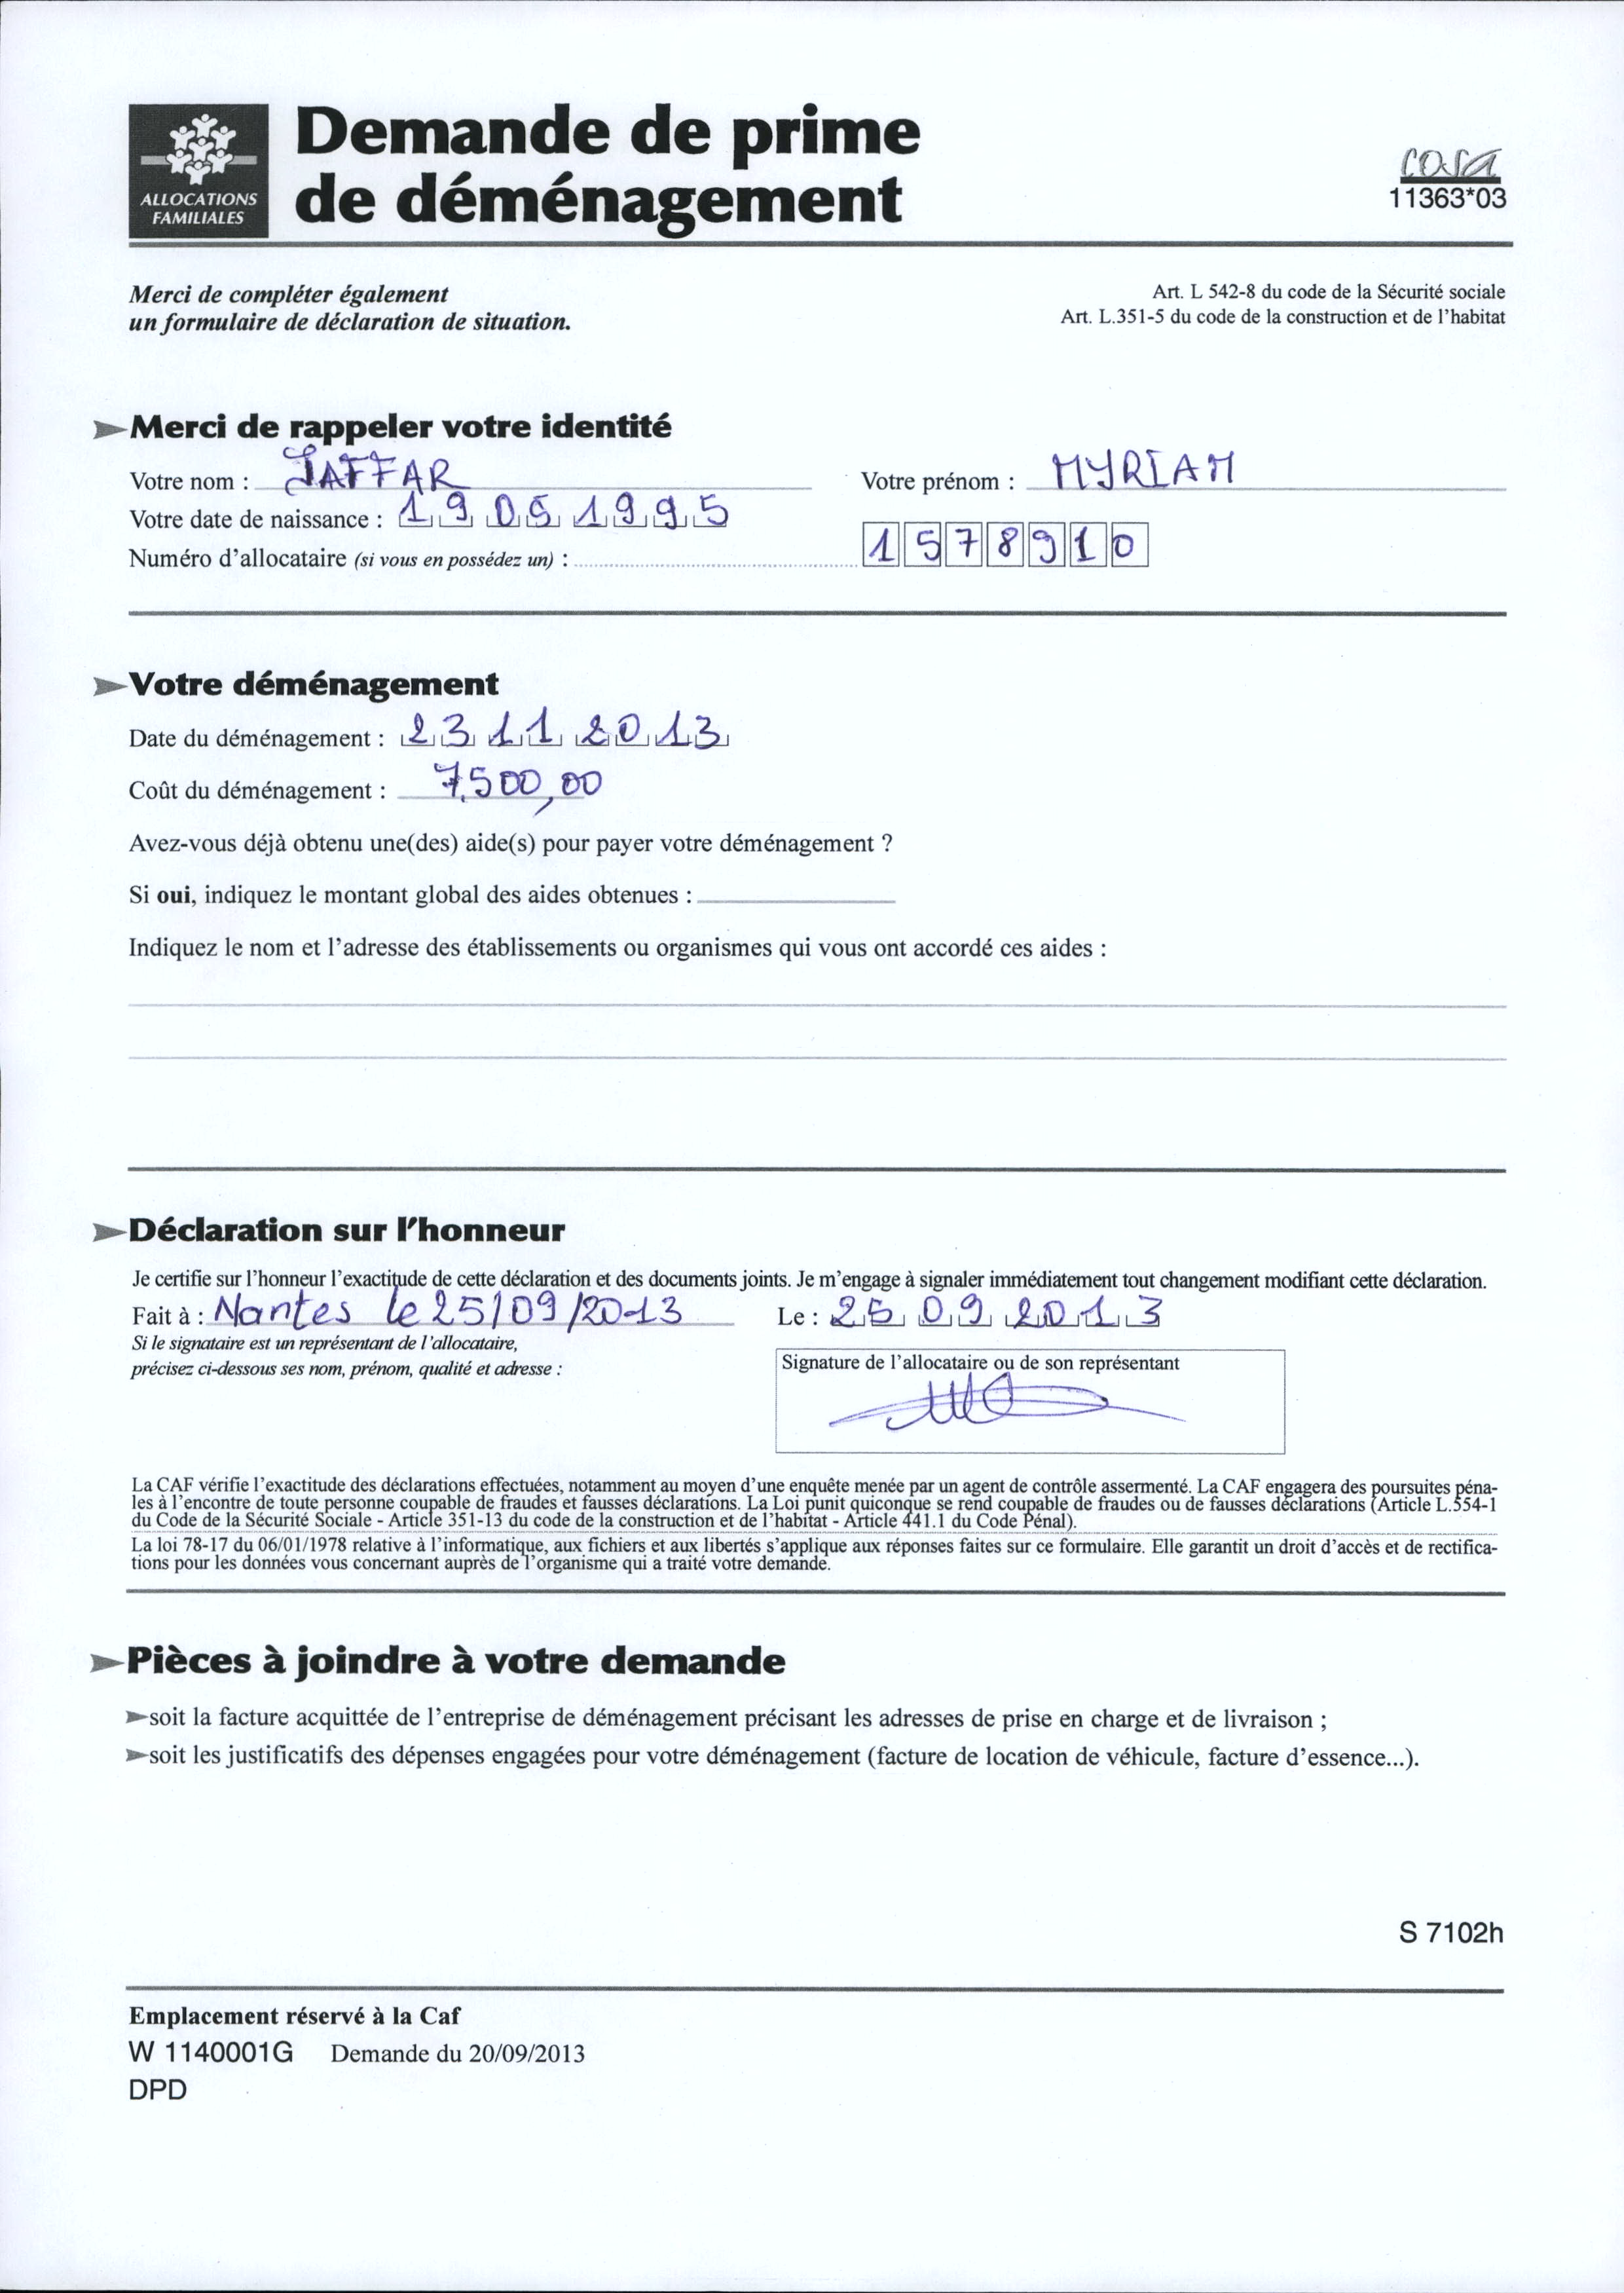 ALLOCATIONS
FAMILIALES
Demande de prime
de déménagement
cerfa
11363*03
Merci de compléter également
un formulaire de déclaration de situation.
Art. L 542-8 du code de la Sécurité sociale
Art. L.351-5 du code de la construction et de l'habitat
Merci de rappeler votre identité
Votre nom : JAFFAR Votre prénom : MYRIAM
Votre date de naissance : 19 05 1995
Numéro d'allocataire (si vous en possédez un) : 1578910
Votre déménagement
Date du déménagement : 23 11 2013
Coût du déménagement : 7.500,00
Avez-vous déjà obtenu une(des) aide(s) pour payer votre déménagement ?
Si oui, indiquez le montant global des aides obtenues :
Indiquez le nom et l'adresse des établissements ou organismes qui vous ont accordé ces aides :
Déclaration sur l'honneur
Je certifie sur l'honneur l'exactitude de cette déclaration et des documents joints. Je m'engage à signaler immédiatement tout changement modifiant cette déclaration.
Fait à : Nantes le 25/09/2013 Le : 25 09 2013
Si le signataire est un représentant de l'allocataire,
précisez ci-dessous ses nom, prénom, qualité et adresse :
Signature de l'allocataire ou de son représentant
La CAF vérifie l'exactitude des déclarations effectuées, notamment au moyen d'une enquête menée par un agent de contrôle assermenté. La CAF engagera des poursuites péna-
les à l'encontre de toute personne coupable de fraudes et fausses déclarations. La Loi punit quiconque se rend coupable de fraudes ou de fausses déclarations (Article L.554-1
du Code de la Sécurité Sociale - Article 351-13 du code de la construction et de l'habitat - Article 441.1 du Code Pénal).
La loi 78-17 du 06/01/1978 relative à l'informatique, aux fichiers et aux libertés s'applique aux réponses faites sur ce formulaire. Elle garantit un droit d'accès et de rectifica-
tions pour les données vous concernant auprès de l'organisme qui a traité votre demande.
Pièces à joindre à votre demande
soit la facture acquittée de l'entreprise de déménagement précisant les adresses de prise en charge et de livraison ;
soit les justificatifs des dépenses engagées pour votre déménagement (facture de location de véhicule, facture d'essence...).
S 7102h
Emplacement réservé à la Caf
W 1140001G Demande du 20/09/2013
DPD